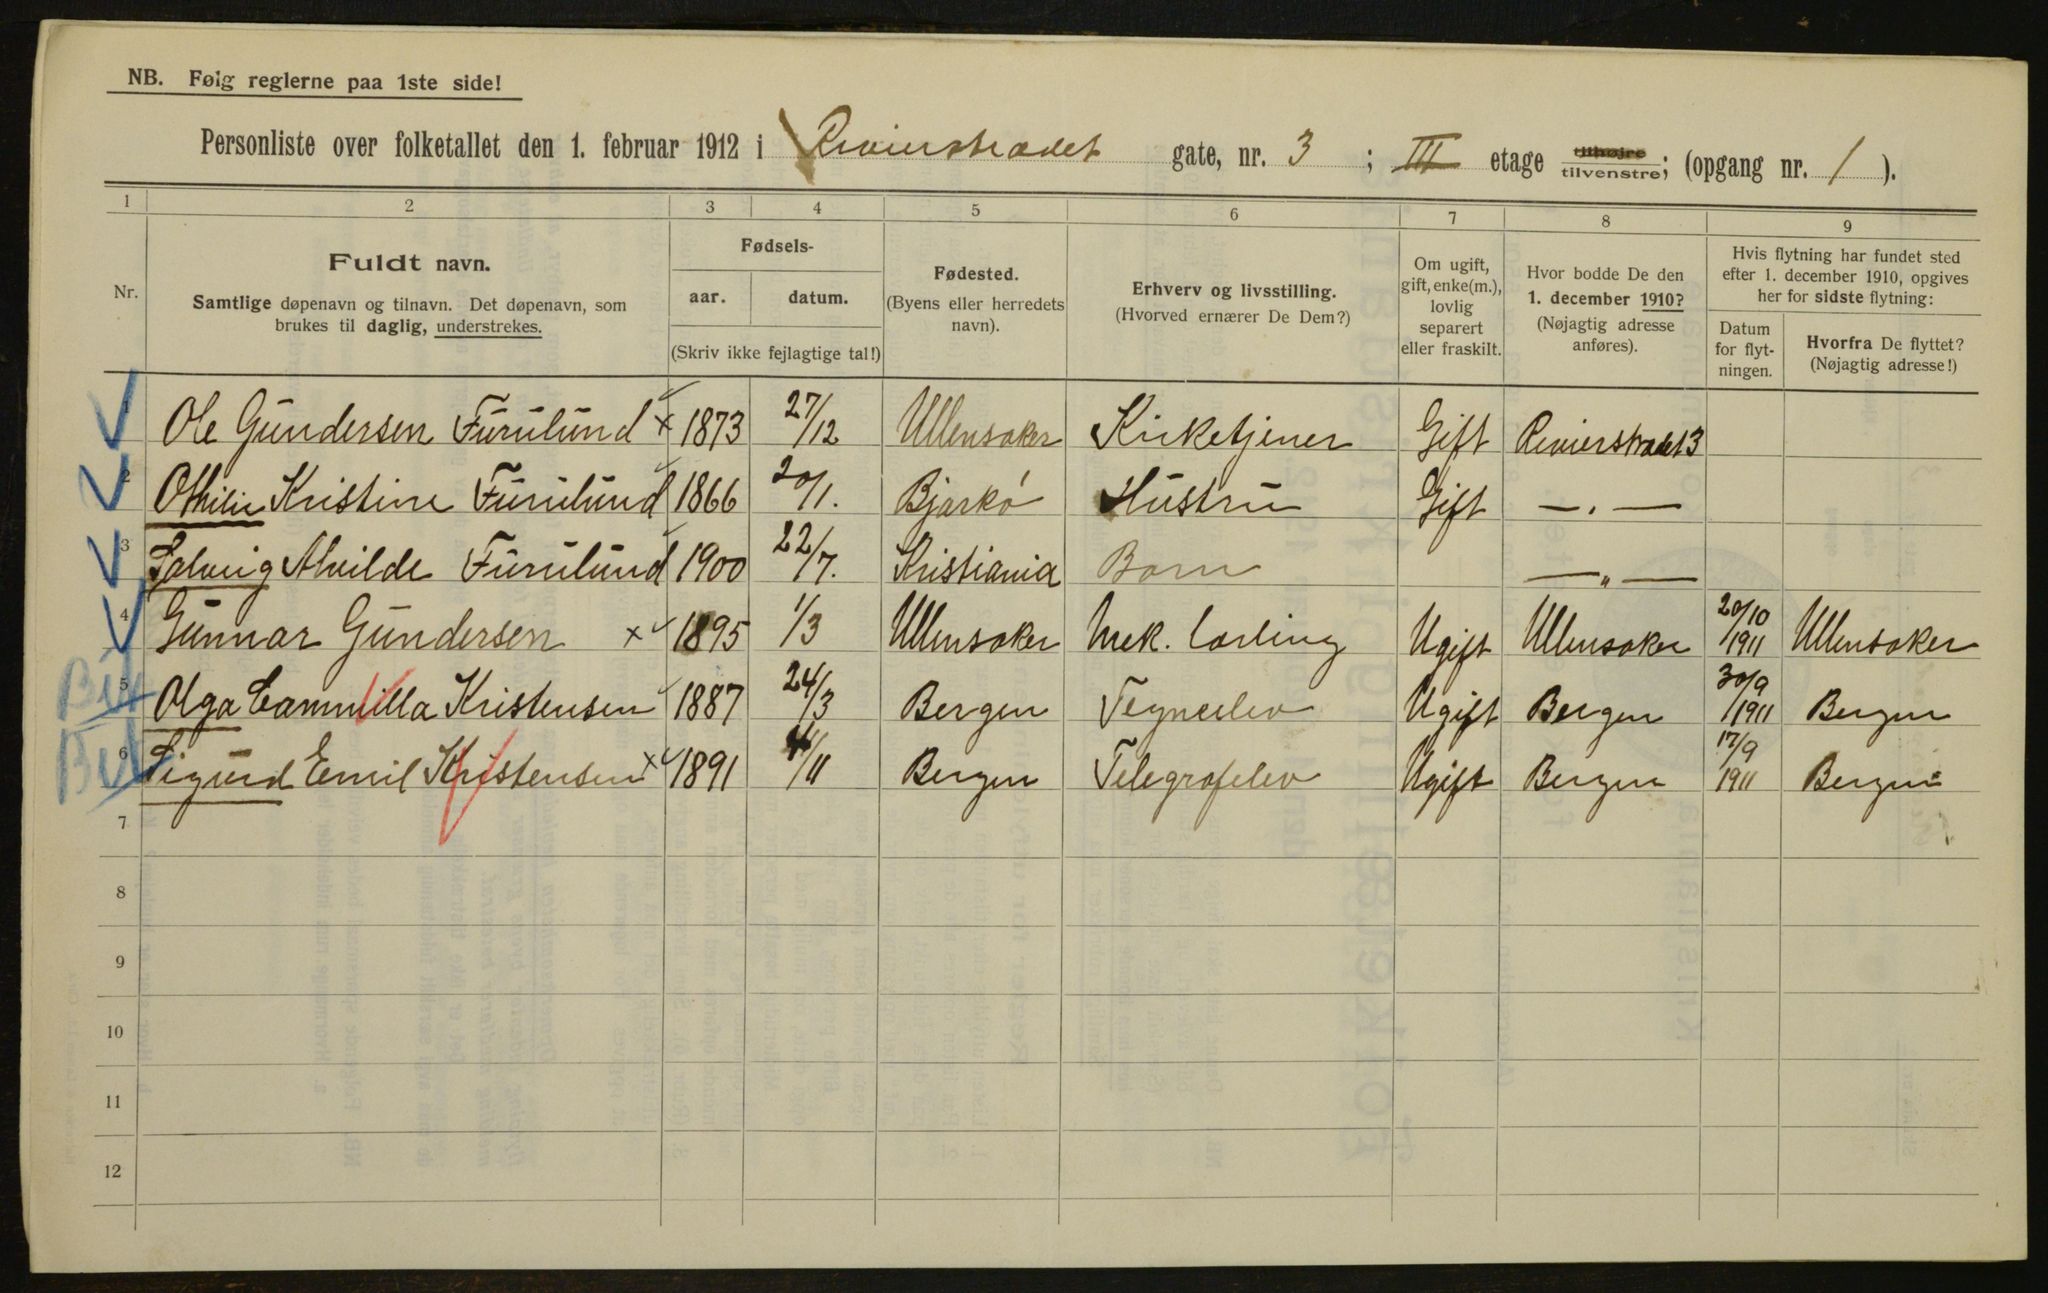 NB. Følg reglerne paa 1ste side!
Personliste over folketallet den 1. februar 1912 i Revierstrædet gate, nr. 3 ; III etage tilhøjre tilvenstre; (opgang nr. 1 ).
1 2 3 4 5 6 7 8 9
Nr.
Fuldt navn.
Samtlige døpenavn og tilnavn. Det døpenavn, som
brukes til daglig, understrekes.
Fødsels-
aar. datum.
(Skriv ikke fejlagtige tal!)
Fødested.
(Byens eller herredets
navn).
Erhverv og livsstilling.
(Hvorved ernærer De Dem?)
Om ugift,
gift, enke(m.),
lovlig
separert
eller fraskilt.
Hvor bodde De den
1. december 1910?
(Nøjagtig adresse
anføres).
Hvis flytning har fundet sted
efter 1. december 1910, opgives
her for sidste flytning:
Datum
for flyt-
ningen.
Hvorfra De flyttet?
(Nøjagtig adresse!)
1 Ole Gundersen Furulund x 1873 27/12 Ullensaker Kirketjener Gift Revierstrædet 3
2 Othilie Kristine Furulund 1866 20/1. Bjarkö Hustru Gift — . —
3 Solveig Alvilde Furulund 1900 22/7. Kristiania Barn — „ —
4 Gunnar Gundersen x 1895 1/3 Ullensaker Mek. Lærling Ugift Ullensaker 20/10 1911 Ullensaker
5 Olga Cammilla Kristensen 1887 24/3 Bergen Tegneelev Ugift Bergen 30/9 1911 Bergen
6 Sigurd Emil Kristensen x 1891 /11 Bergen Telegrafelev Ugift Bergen 17/9 1911 Bergen
7
8
9
10
11
12